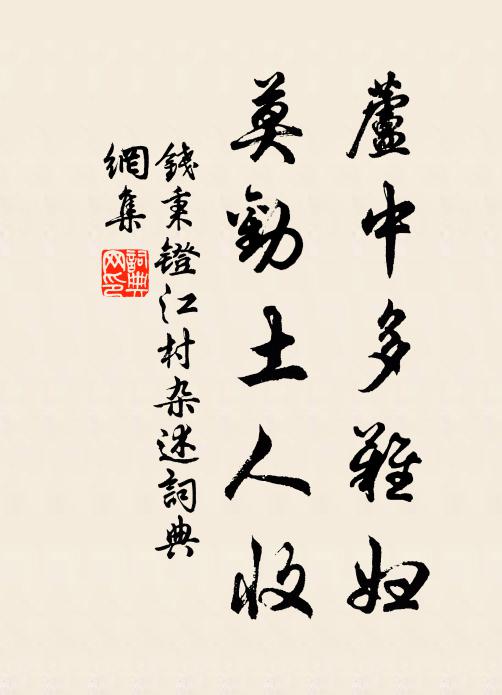 蘆中多難婦
莫勸土人收
錢秉鐙江村杂述詞典
網集
詞典網印